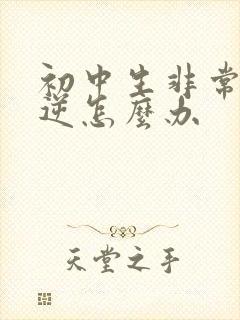 初中生非常
逆怎麼办
天堂之手